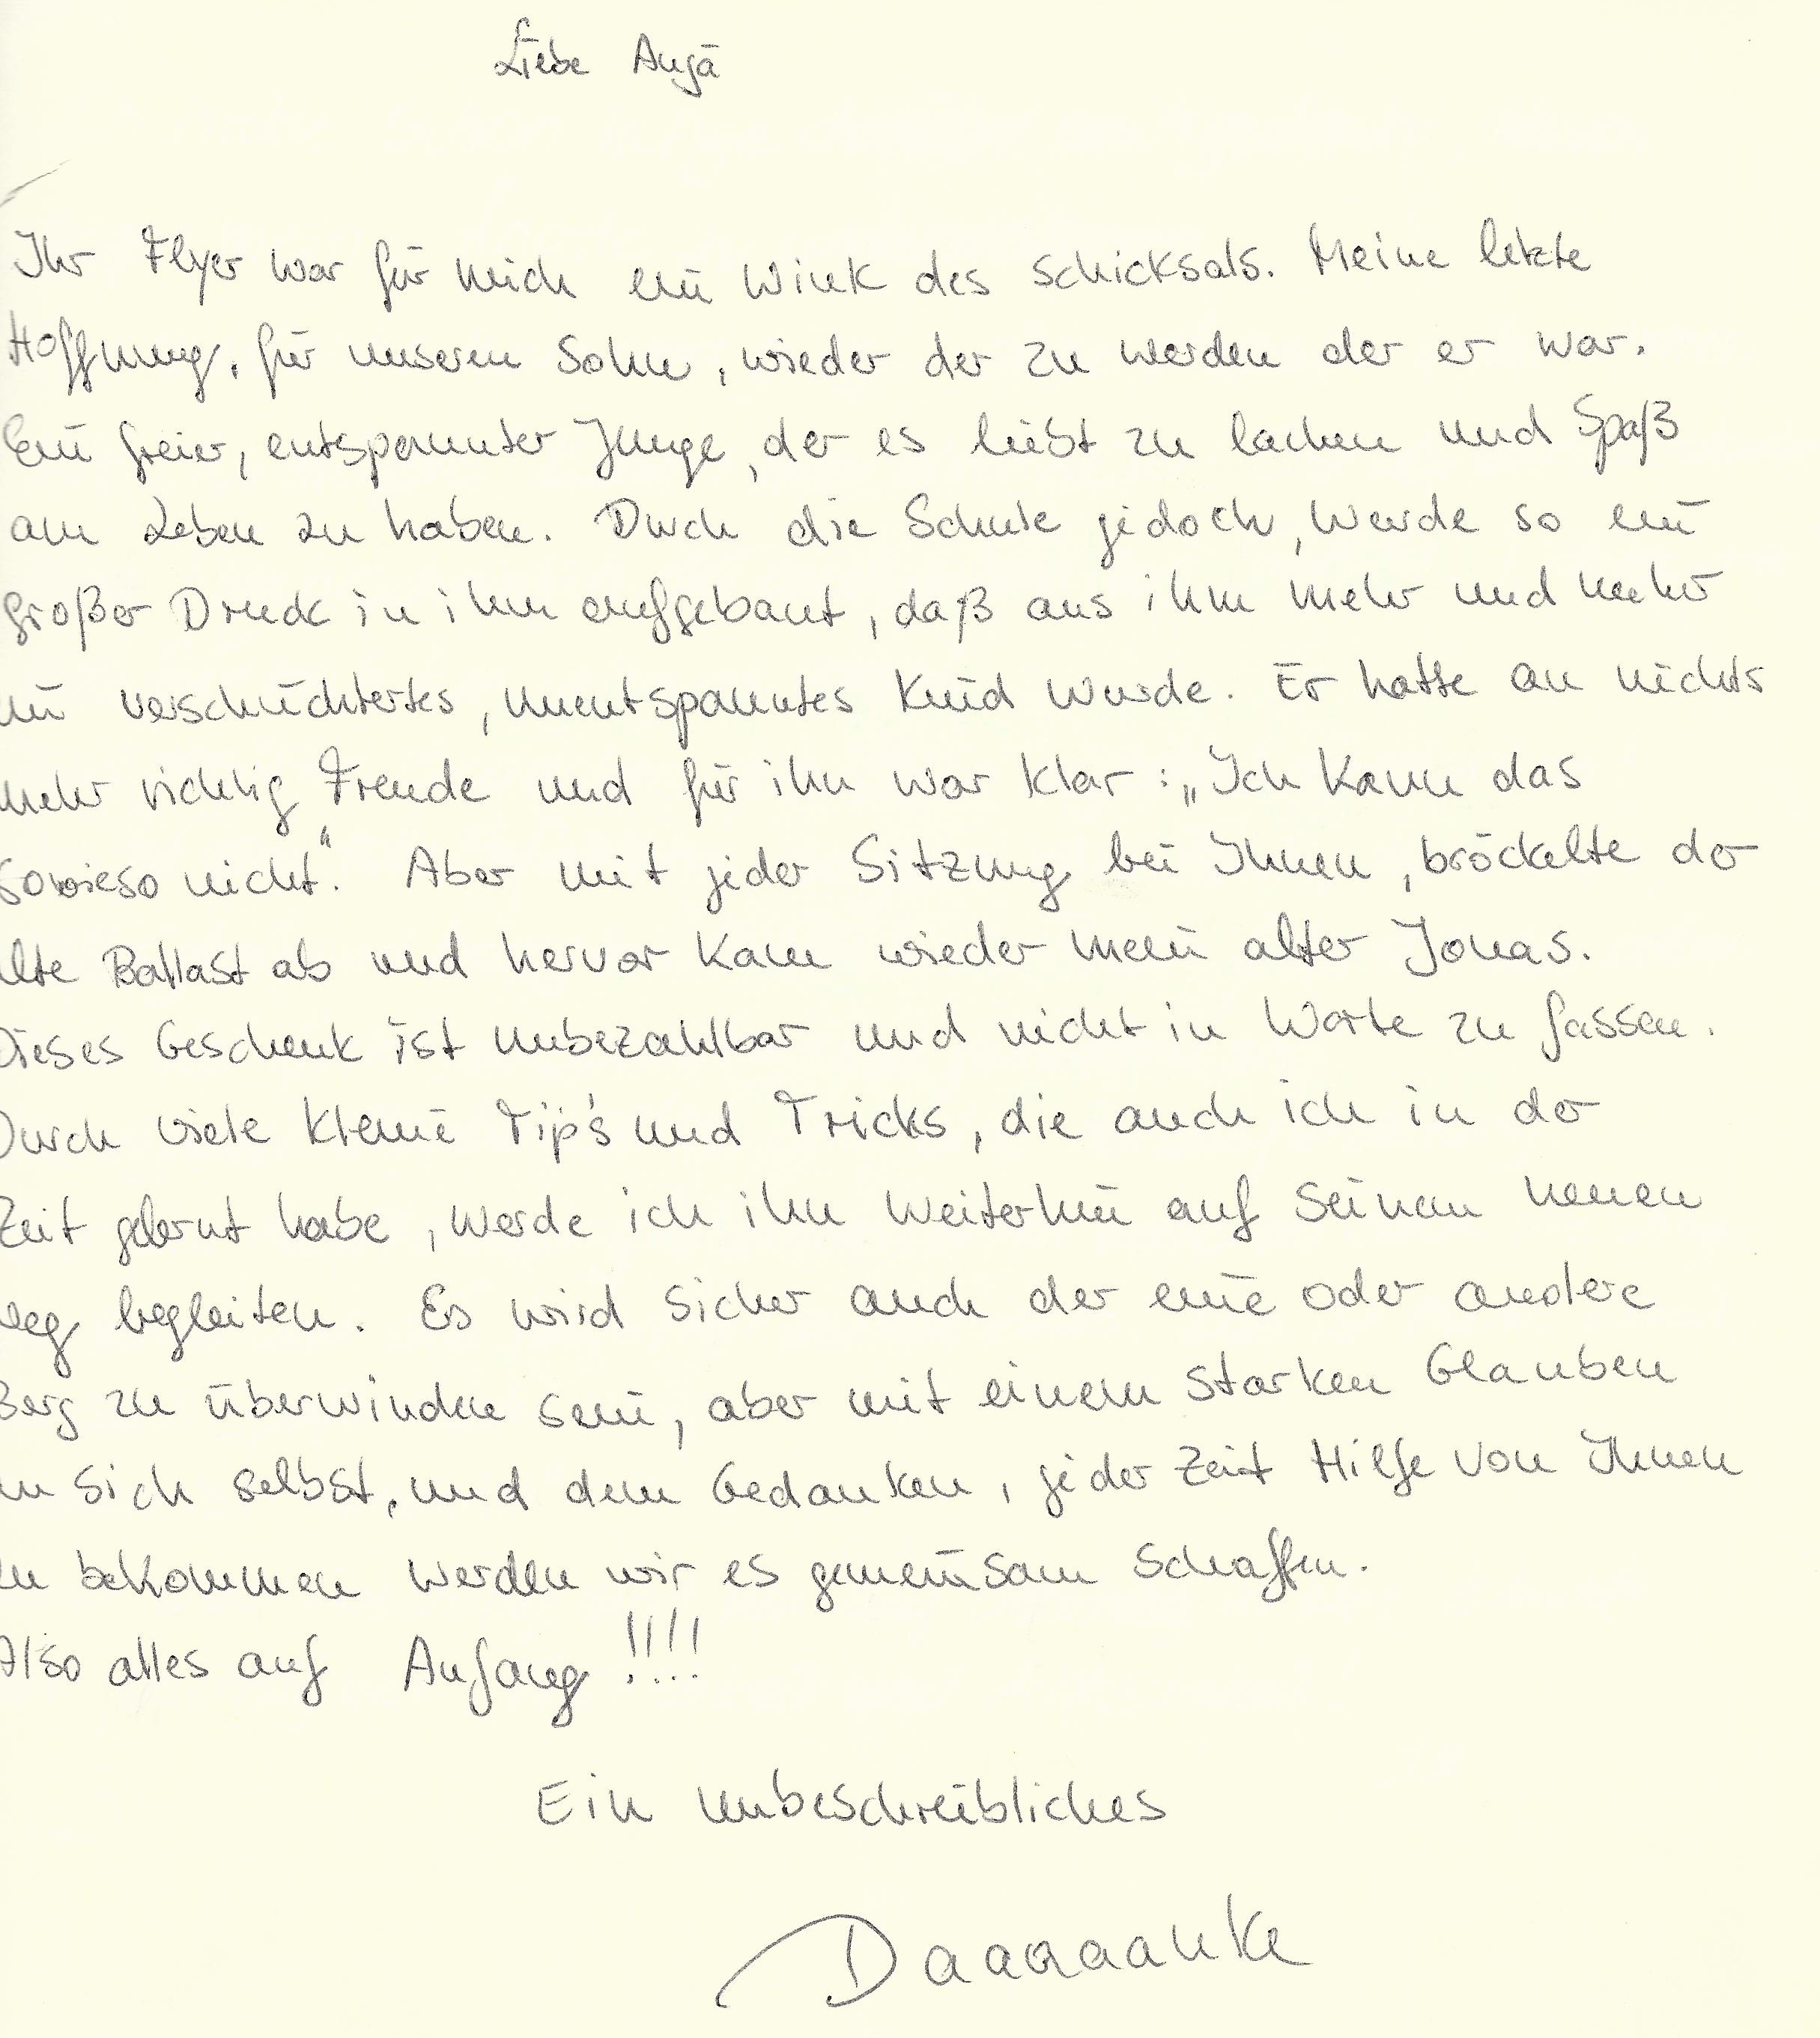 Liebe Anja
Ihr Flyer war für mich ein Wink des Schicksals. Meine letzte
Hoffnung, für unseren Sohn, wieder der zu werden der er war.
Ein freier, entspannter Junge, der es liebt zu lachen und Spaß
am Leben zu haben. Durch die Schule jedoch, wurde so ein
großer Druck in ihm aufgebaut, daß aus ihm mehr und mehr
ein verschüchtertes, unentspanntes Kind wurde. Er hatte an nichts
mehr richtig Freude und für ihn war klar: „Ich kann das
sowieso nicht“. Aber mit jeder Sitzung bei Ihnen, bröckelte der
alte Ballast ab und hervor kam wieder mein alter Jonas.
Dieses Geschenk ist unbezahlbar und nicht in Worte zu fassen.
Durch viele kleine Tip's und Tricks, die auch ich in der
Zeit gelernt habe, werde ich ihn weiterhin auf seinen neuen
Weg begleiten. Es wird sicher auch der eine oder andere
Berg zu überwinden sein, aber mit einem starken Glauben
an sich selbst, und dem Gedanken, jeder Zeit Hilfe von Ihnen
zu bekommen werden wir es gemeinsam schaffen.
Also alles auf Anfang !!!!
Ein unbeschreibliches
Daaaaanke